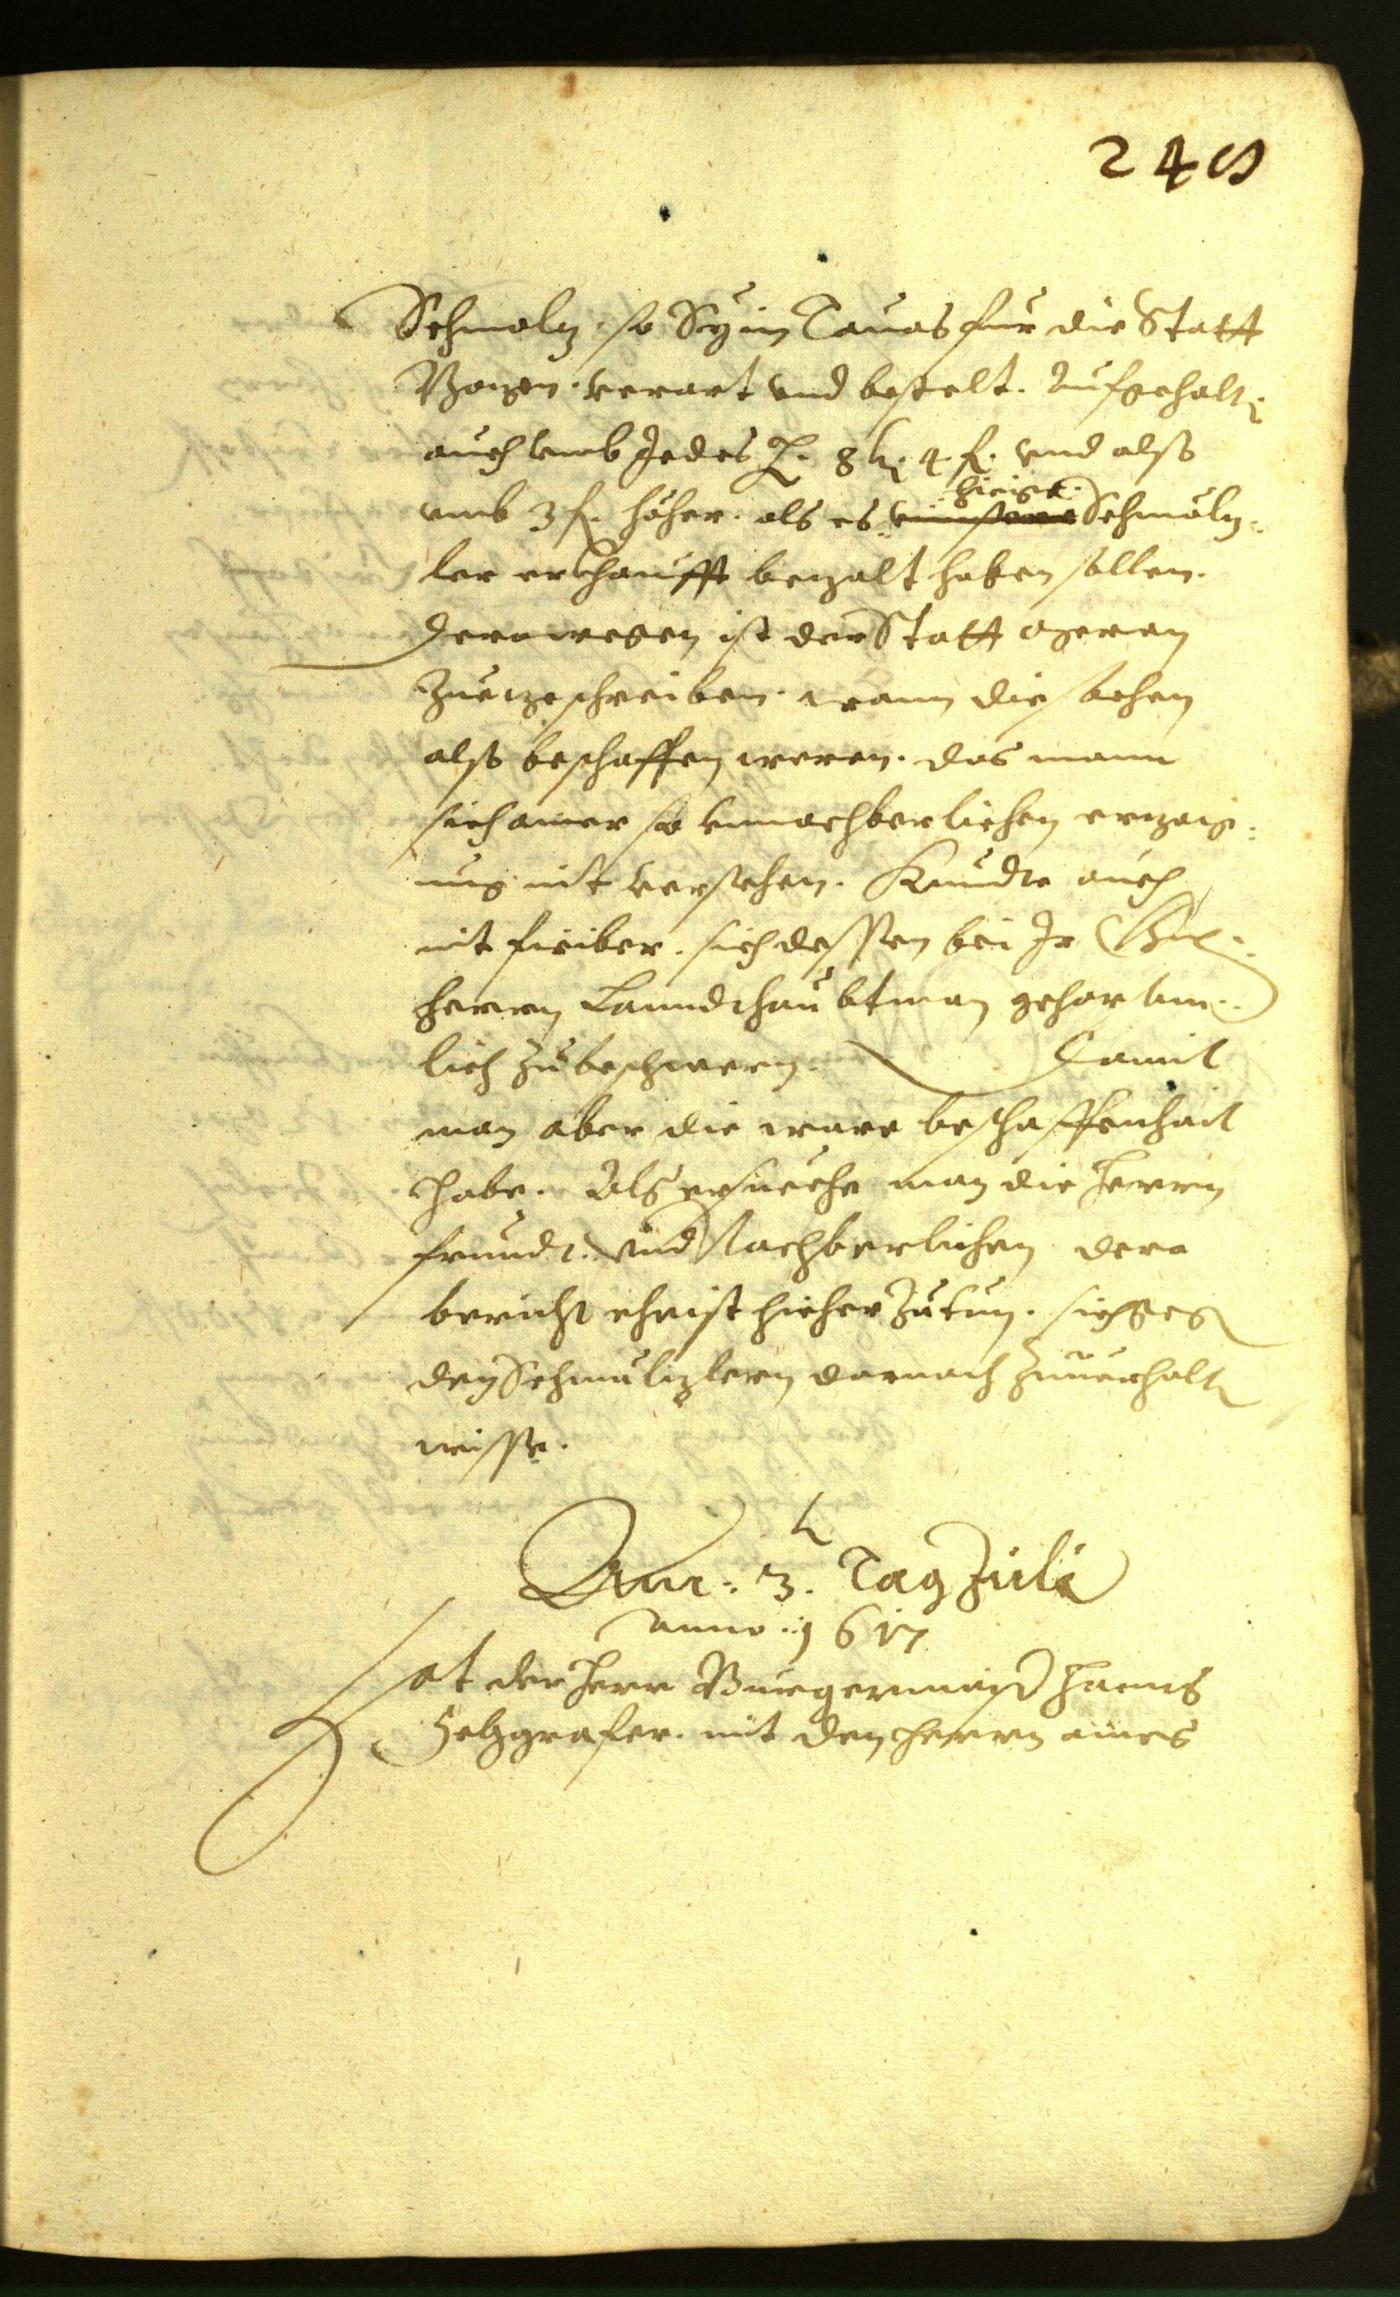 248
Schmalz, so Sy im Tauas fur die Statt
Bozen. verart vnd bestelt. Aufgehalt,
auch vmb Jedes lb. 8 kr. 4 f. vnd also
vmb 3 f. höher. als es hiesige Schmölz-
ler erkhaufft bezalt haben sollen.
Derowegen ist der Statt
Zuezeschreiben. wann die sachen
also beschaffen weren. das mann
sich ainer so vnnachberlichen erzaig-
ung nit versehen. Kundte auch
nit fürüber. sich dessen bei Jr
herrn Lanndtshaubtman gehorsam-
lich zu beschwern. Damit
man aber die ware beschaffenhait
habe. Als ersueche man die Herrn
freundt. vnd Nachberlichen dero
bericht ehrist hieher zutun. sich gegen
den Schmälizlern darnach zuuerhalt
wisse.
Den: 3. Tag Juli
anno 1617
Hat der Herr Burgermaister Hanns
Holzgrafer. mit den Herrn aines